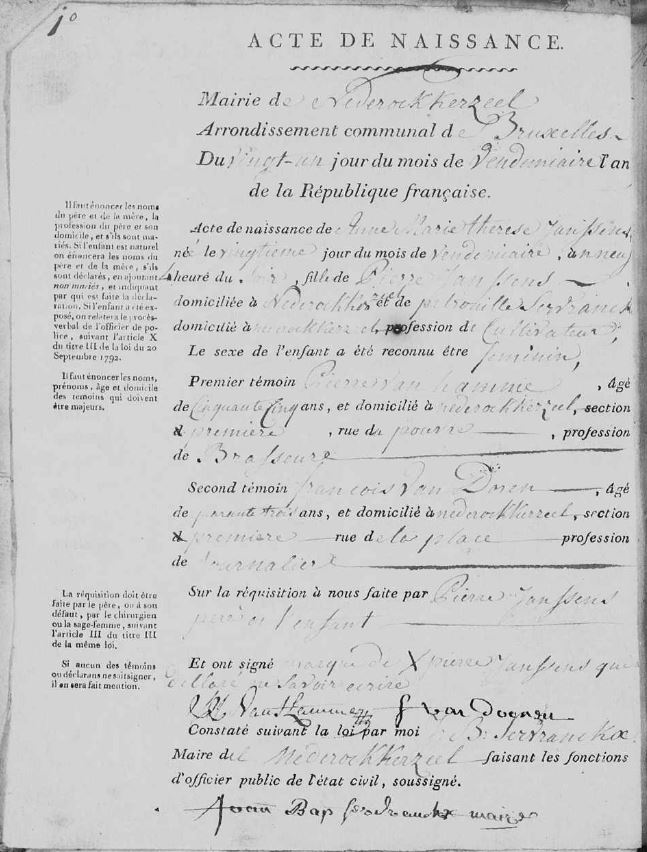 1o
ACTE DE NAISSANCE.
Mairie de Nederockkerzeel
Arrondissement communal de Bruxelles
Du vingt-un jour du mois de Vendemiaire l'an
de la République française.
Acte de naissance de Anne Marie therese Janssens
née le vingtieme jour du mois de vendemiaire, à neuf
heure du soir, fille de Pierre Janssens
domiciliée à Nederockker et de petronille Servranck
domicilié à nederockkerzeel, profession de Cultivateur,
Le sexe de l'enfant a été reconnu être feminin,
Premier témoin Pierre Van hamme, âgé
de Cinquante Cinq ans, et domicilié à nederockkerzeel, section
premiere, rue de, profession
de Brasseure
Second témoin francois Van Doren, âgé
de trois ans, et domicilié à nederockkerzeel, section
premiere rue de la place profession
de Journalier
Sur la réquisition à nous faite par Pierre Janssens
l'enfant
Et ont signé marque de X pierre Janssens que
declaré ne savoir ecrire
Van Hammen f van Dooren
Constaté suivant la loi par moi J. B. Servranckx
Maire de Nederockkerzeel faisant les fonctions
d'officier public de l'état civil, soussigné.
Joan Bap servranckx maire
Il faut énoncer les noms
du père et de la mère, la
profession du père et son
domicile, et s'ils sont ma-
riés. Si l'enfant est naturel
on énoncera les noms du
père et de la mère, s'ils
sont déclarés, en ajoutant
non mariés, et indiquant
par qui est faite la décla-
ration. Si l'enfant a été ex-
posé, on relatera le procès-
verbal de l'officier de po-
lice, suivant l'article X
du titre III de la loi du 20
Septembre 1792.
Il faut énoncer les noms,
prénoms, âge et domicile
des témoins qui doivent
être majeurs.
La réquisition doit être
faite par le père, ou à son
défaut, par le chirurgien
ou la sage-femme, suivant
l'article III du titre III
de la même loi.
Si aucun des témoins
ou déclarans ne sait signer,
il en sera fait mention.